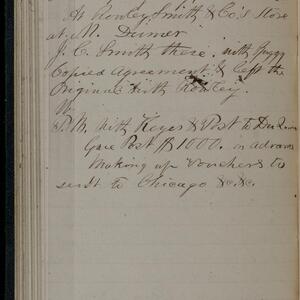 At Rowley, Smith & Co's Store
at M. Dinner
J. C. Smith there. with
Copied Agreement & left the
Original with Rowley.
P.M. with Keyes & Post to
Gave Post $1000. in advance
Making up vouchers to
send to Chicago &c &c.